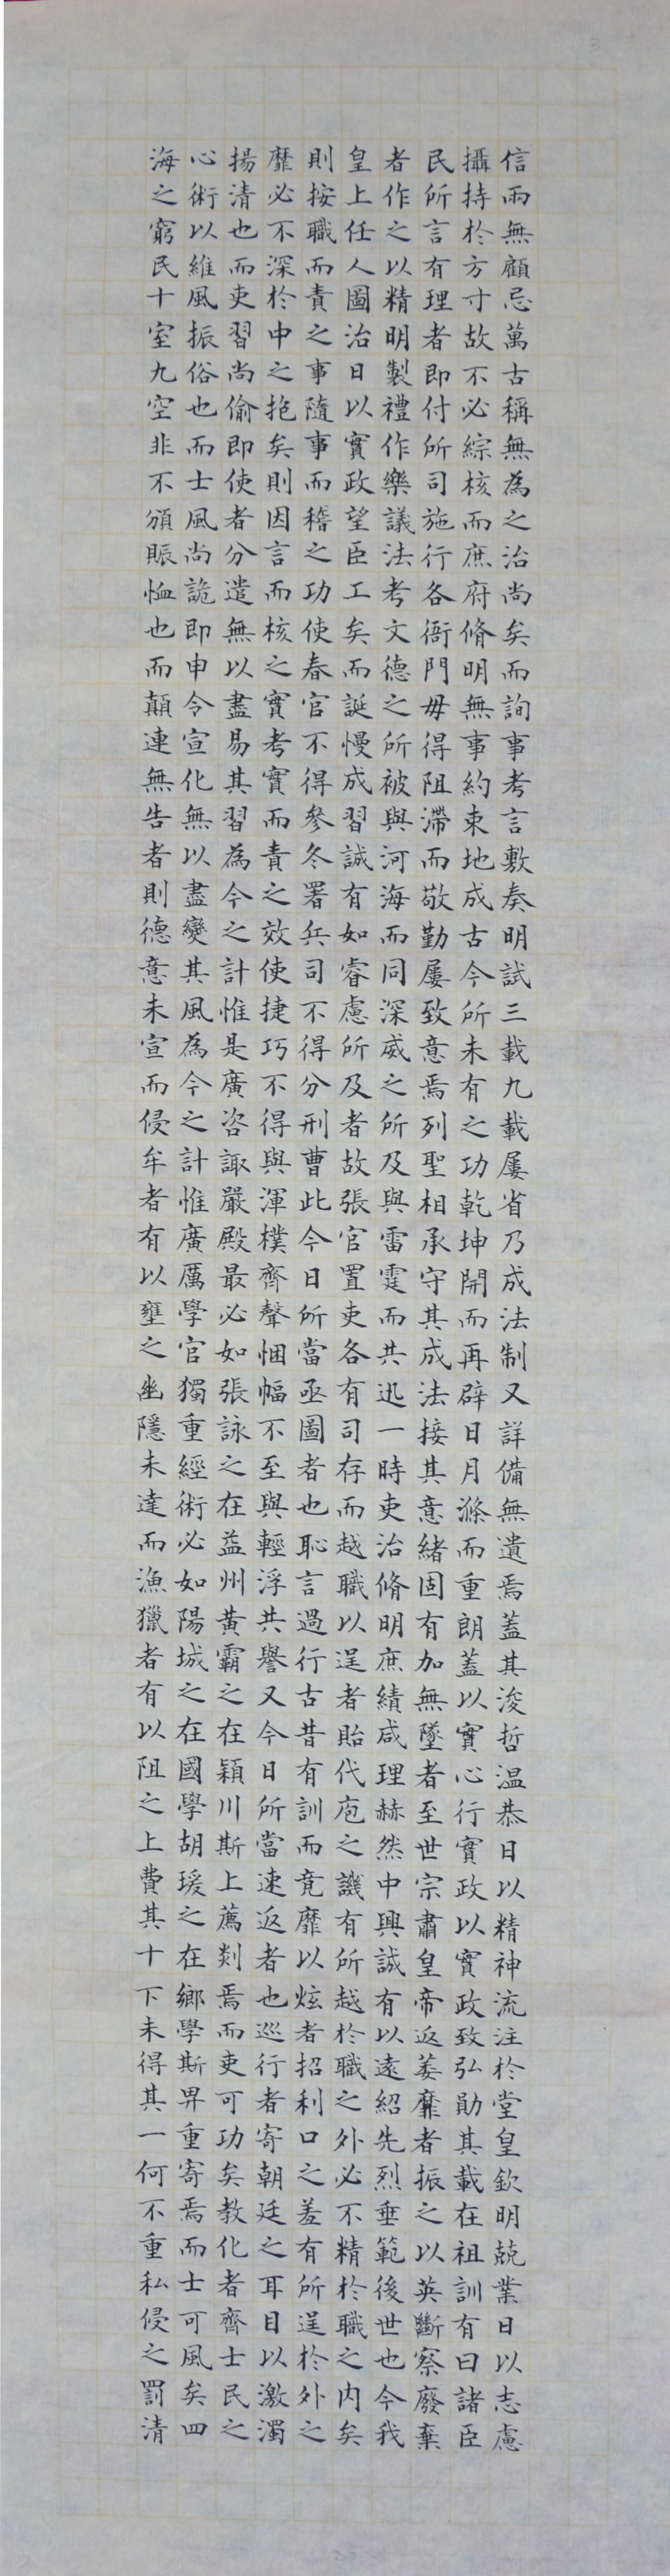 信兩無顧忌萬古稱無為之治尚矣而詢事考言敷奏明試三載九載屢省乃成法制又詳備無遺焉蓋其浚哲温恭日以精神流注於堂皇欽明兢業日以志慮
攝持於方寸故不必綜核而庶府脩明無事約束地成古今所未有之功乾坤開而再辟日月滌而重朗蓋以實心行實政以實政致弘勛其載在祖訓有曰諸臣
民所言有理者即付所司施行各衙門毋得阻滯而敬勤屢致意焉列聖相承守其成法接其意緒固有加無墜者至世宗肅皇帝返萎靡者振之以英斷察廢棄
者作之以精明製禮作樂議法考文德之所被與河海而同深威之所及與雷霆而共迅一時吏治脩明庶績咸理赫然中興誠有以遠紹先烈垂範後世也今我
皇上任人圖治日以實政望臣工矣而誕慢成習誠有如睿慮所及者故張官置吏各有司存而越職以逞者貽代庖之譏有所越於職之外必不精於職之内矣
則按職而責之事隨事而稽之功使春官不得參冬署兵司不得分刑曹此今日所當亟圖者也恥言過行古昔有訓而竟靡以炫者招利口之羞有所逞於外之
靡必不深於中之抱矣則因言而核之實考實而責之效使捷巧不得與渾樸齊聲悃幅不至與輕浮共譽又今日所當速返者也巡行者寄朝廷之耳目以激濁
揚清也而吏習尚偷即使者分遣無以盡易其習為今之計惟是廣咨諏嚴殿最必如張詠之在益州黃霸之在穎川斯上薦剡焉而吏可功矣教化者齊士民之
心術以維風振俗也而士風尚詭即申令宣化無以盡變其風為今之計惟廣厲學官獨重經術必如陽城之在國學胡瑗之在鄉學斯畀重寄焉而士可風矣四
海之窮民十室九空非不頒賑恤也而顛連無告者則德意未宣而侵牟者有以壅之幽隱未達而漁獵者有以阻之上費其十下未得其一何不重私侵之罰清